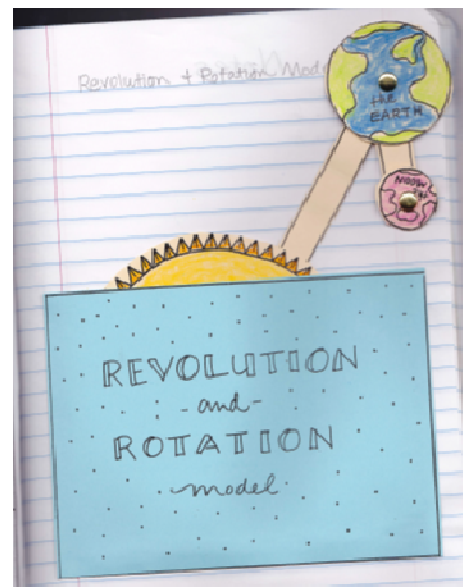 Revolution + Rotation Mod
the
EARTH
MOON
REVOLUTION
-and-
ROTATION
model